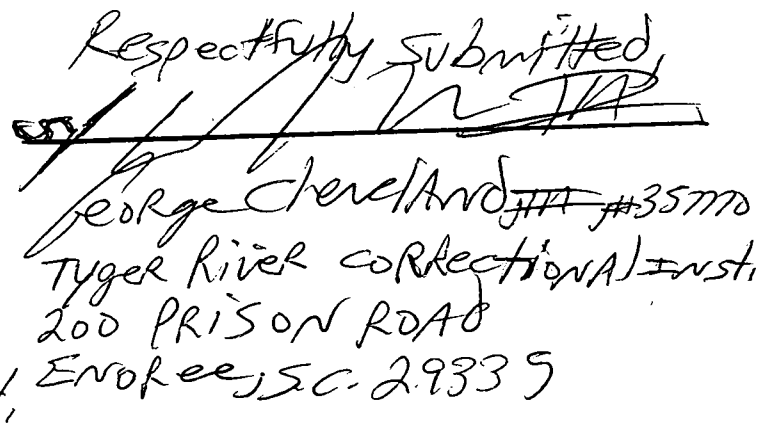 Respectfully submitted,
S/
George Cleveland III #357770
Tyger River Correctional Inst.
200 PRISON ROAD
Enoree, S.C. 29335